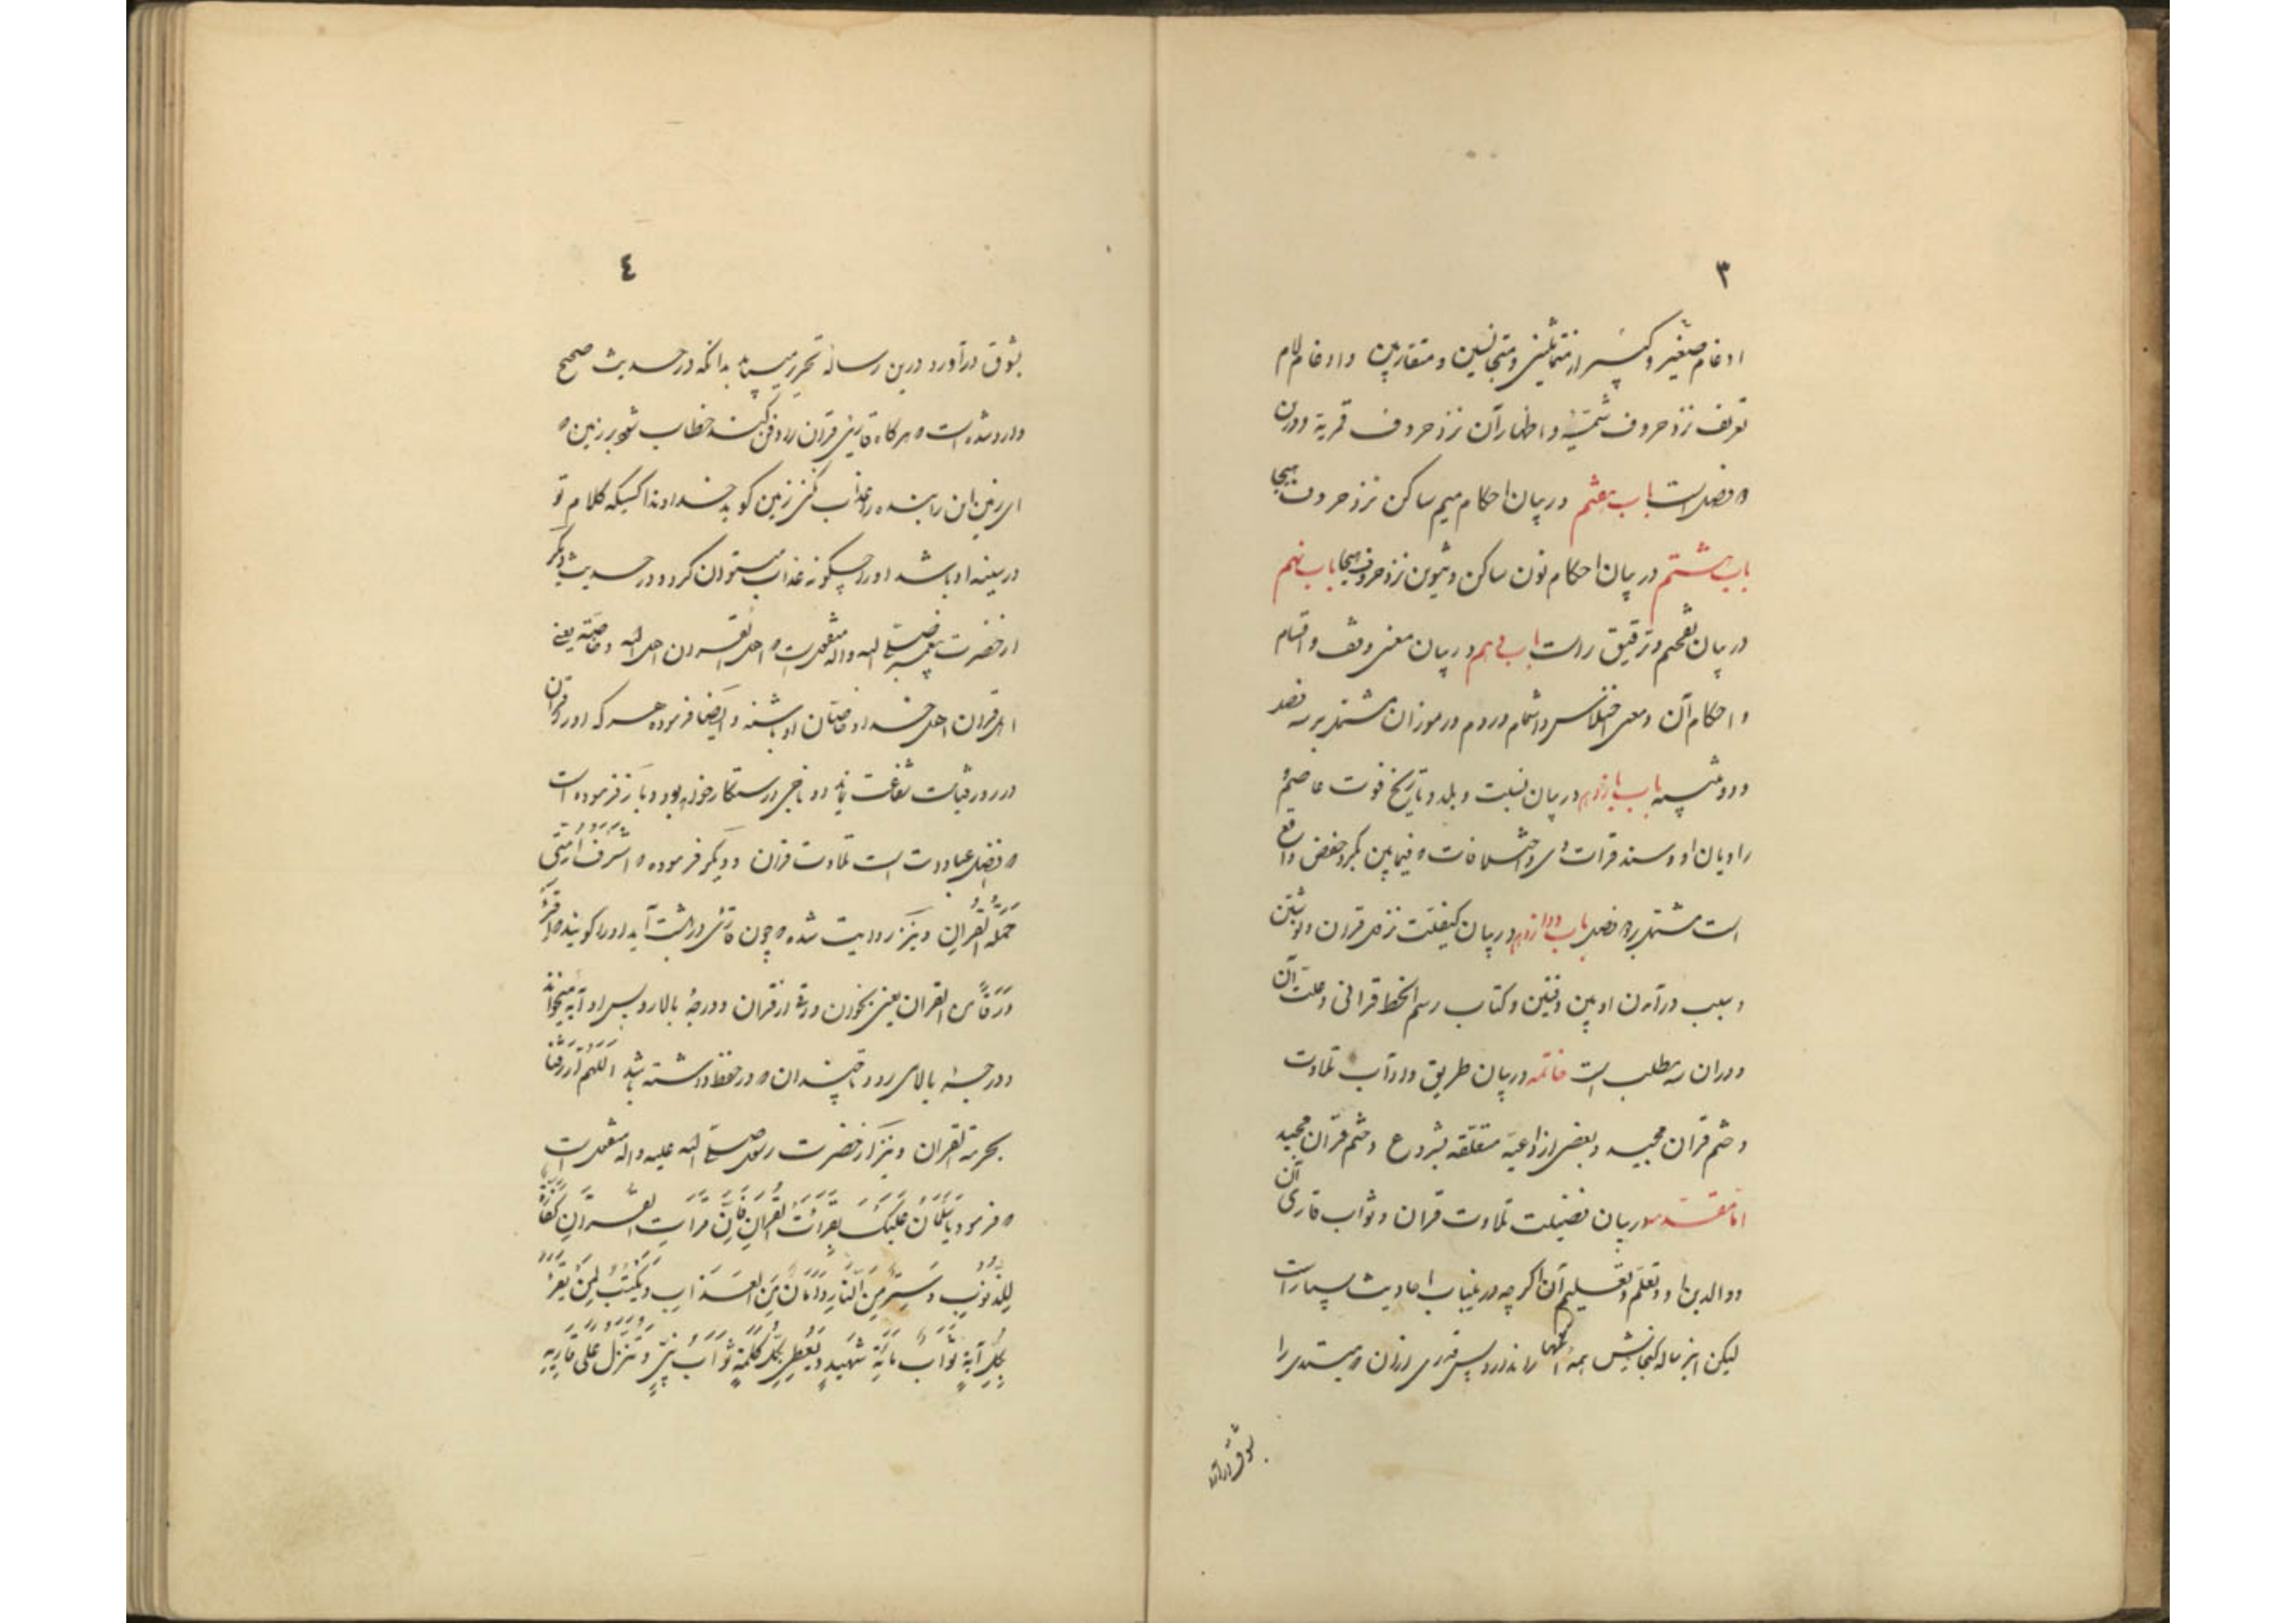 ۳
ادغام صغیر و کبیر از متماثلین و متجانسین و متقاربین و ادغام لام
تعریف نزد حروف شمسیّه و اظهار آن نزد حروف قمریة و در ان
فصل است باب هفتم در بیان احکام میم ساکن نزد حروف هیجا
باب هشتم در بیان احکام نون ساکن و تنوین نزد حروف هیجا باب نهم
در بیان تفخیم و ترقیق راست باب دهم در بیان معنی وقف و اقسام
و احکام آن و معنی اختلاس و اشمام و روم و رموز آن مشتمل بر سه فصل
و دو تنبیه باب یازدهم در بیان نسبت و بلد و تاریخ فوت عاصم
راویان او و سند قرائت وی و اختلافات فیما بین بکر و حفص واقع
است مشتمل بر فصل باب دوازدهم در بیان کیفیّت نزول قران و نوشتن
و سبب درآمدن او بین دفتین و کتاب رسم الخط قرانی و علت آن
و در ان سه مطلب است خاتمه در بیان طریق و آداب تلاوت
و ختم قران مجید و بعضی از ادعیّه متعلّقه بشروع و ختم قرآن مجید
امّا مقدّمه در بیان فضیلت تلاوت قران و ثواب قاری آن
و والدین او و تعلّم و تعلیم آن اگر چه در ینباب احادیث بسیار است
لیکن این رساله گنجایش همه آنها را ندارد پس قدری از ان مبتدی را
بشوق درآورد
٤
بشوق درآورد درین رساله تحریر مینماید بدانکه در حدیث صحیح
وارد شده است هرگاه قاری قران را دفن کنند خطاب شود بر زمین
ای زمین این بنده را عذاب مکن زمین گوید خداوندا کسیکه کلام تو
در سینه او باشد او را چگونه عذاب میتوان کرد و در حدیث دیگر
از حضرت پیغمبر صلی الله و اله منقولست اهل القران اهل الله و خاصّته یعنی
اهل قران اهل خدا و خاصّان او باشند و ایضا فرموده هر که او را قرآن
در روز قیامت شفاعت نماید ناجی و رستگار خواهد بود و باز فرموده است
افضل عبادت است تلاوت قران و دیگر فرموده اشرف امّتی
حملة القران و نیز روایت شده چون قاری در بهشت آید او را گویند اقرء
وارقا القران یعنی بخوان ورق از قران و درجهٔ بالا رو پس او آیه میخواند
و درجهٔ بالا می رود تا چندان در حفظ داشته باشد اللهم ارزقنا
بحرمة القران و نیز از حضرت رسول صلی الله علیه و اله منقولست
فرمود یا سلمان علیک بقرائت القران فانّ قرائت القران کفّارة
للذّنوب و ستر من النّار و امان من العذاب و یکتب لمن یقرء
بکلّ آیة ثواب مائة شهید و یعطی بکلّ کلمة ثواب نبیّ و تنزل علی قاریه